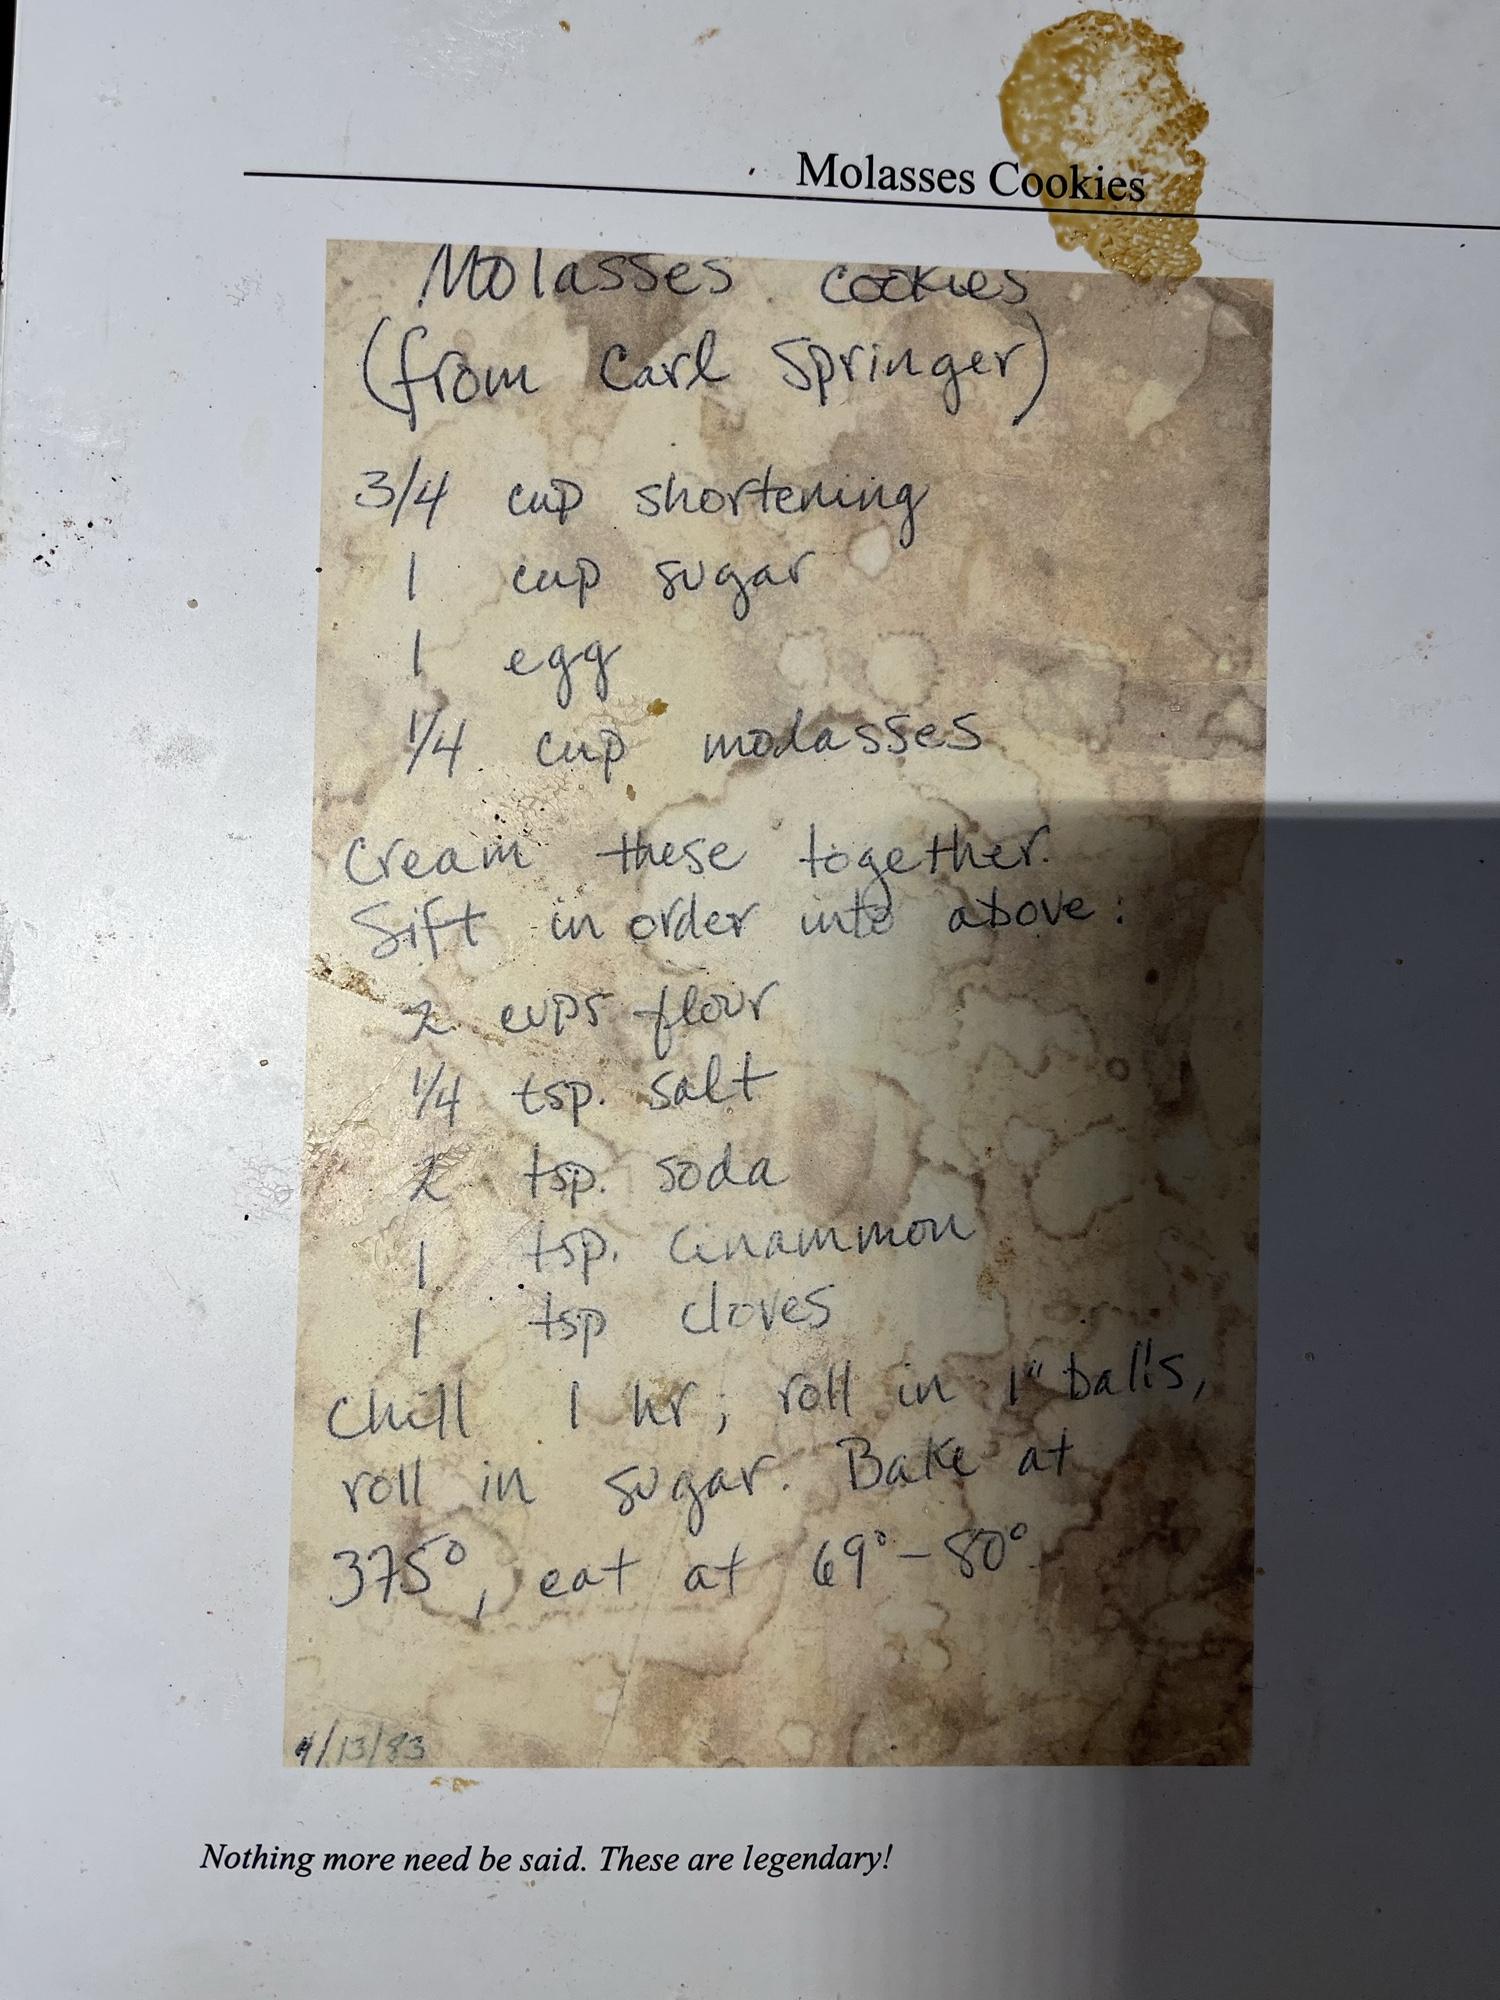 Molasses Cookies
Molasses cookies
(from Carl Springer)
3/4 cup shortening
1 cup sugar
1 egg
1/4 cup molasses
Cream these together.
Sift in order into above:
2 cups flour
1/4 tsp. salt
2 tsp. soda
1 tsp. cinammon
1 tsp cloves
Chill 1 hr; roll in 1" balls,
roll in sugar. Bake at
375°, eat at 69°-80°.
4/13/83
Nothing more need be said. These are legendary!